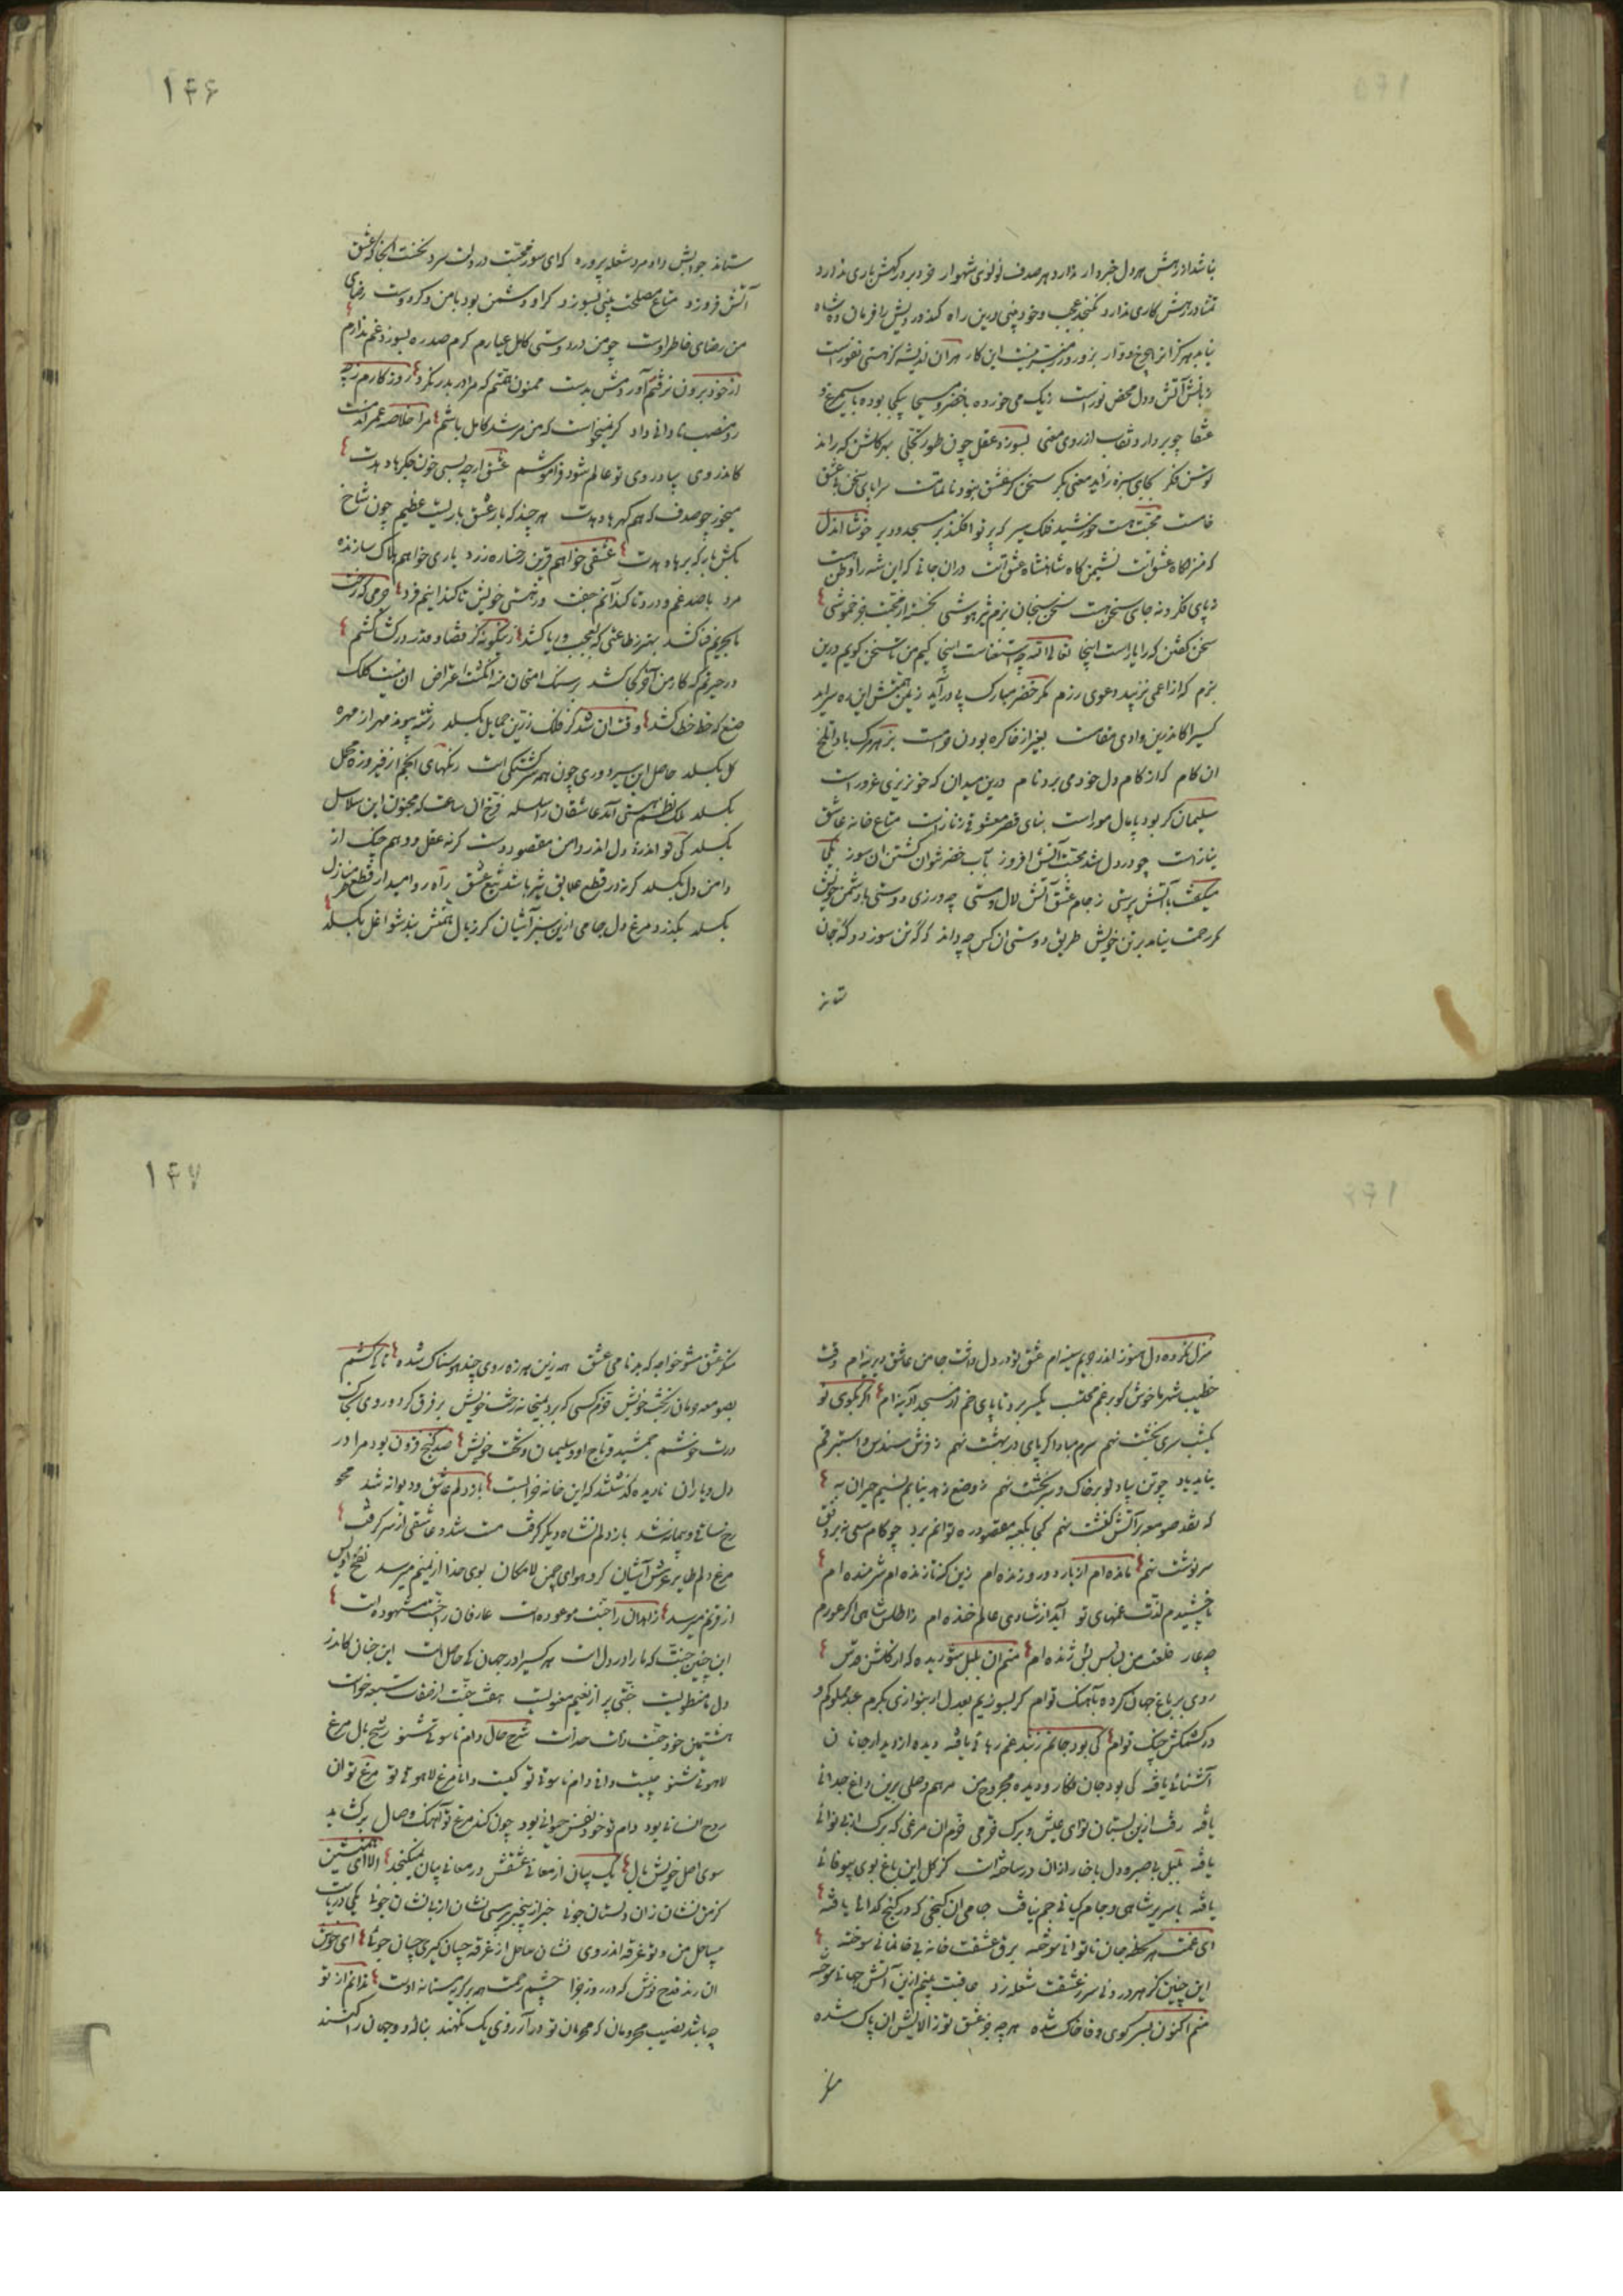 نباشد از رهش هر دل خبردار ندارد هر صدف لولوی شهوار خرد بر درگهش باری ندارد
تمنا در رهش کاری ندارد نگنجد عجب و خودبینی درین راه کند درویش را فرمان ده شاه
نیابد بهر کس از هیچ دوار بزور و زر میسر نیست این کار هر آن اندیشه کز هستی نفور است
زبانش آتش و دل محض نور است زیک می خورده با خضر و مسیحا یکجا بوده با سیمرغ و
عنقا چو بردارد نقاب از روی معنی بسوزد عقل چون طور تجلی بهر گلشن که راند
توسن فکر بجای سبزه زاید معنی بکر سخن گر عشق نبود ناتمامست سراپای سخن بی عشق
خامست محبت هست خورشید فلک سیر که پرتو افکند بر مسجد و دیر خوشا آن دل
که منزلگاه عشق است نشیمن گاه شاهنشاه عشق است در آن جانی که این شه را وطن هست
نه پای فکر و نه جای سخن هست سخن سنجان بزم تیزهوشی نجسته از محبت جز خموشی
سخن گفتن که را یاراست اینجا تعالی الله چه استغناست اینجا کیم من تا سخن گویم درین
بزم که از اعمی نزیبد دعوی رزم مگر خضر مبارک پی درآید زیمن همتش این ره سرآید
کسی را کاندرین وادی مقامست بغیر از خاک ره بودن حرامست بزهر مرگ بادا تلخ
آن کام که از کام دل خود می برد نام درین میدان که خونریزی غرور است
سلیمان گر بود پامال مور است بنای قصر معشوقی ز ناز است متاع خانه عاشق
نیاز است چو در دل شد محبت آتش افروز بآب خضر نتوان کشتن آن سوز یکی
میگفت با آتش پرستی ز جام عشق آتش لال و مستی چه ورزی دوستی با دشمن خویش
که رحمت نیابد بر تن خویش طریق دوستی آن کس چه داند که گه تن سوزد و گه جان
ستاند
۱۴۶
ستاند جوابش داد مرد شعله پرورده که ای سوز محبت در دلت سرد نخست آنجا که عشق
آتش فروزد متاع مصلحت بینی بسوزد گر او دشمن بود با من وگر دوست رضای
من رضای خاطر اوست چو من در دوستی کامل عیارم گرم صد ره بسوزد غم ندارم
از خود برون نرفتم آوردمش بدست ممنون همتم که مرا در بدر نکرد روزگارم
رو منصب نادانی داد گر نمیخواست که من مرشد کامل باشم مرا خلاصه عمر آنست
کاندر وی بیاد روی تو عالم شود فراموشم عشق ارچه بسی خون جگرها دهدت
میخور چو صدف که هم گهرها دهدت هر چند که بار عشق باریست عظیم چون شاخ
بکش بار که برها دهدت عشقی خواهم قرین رخساره زرد یاری خواهم هلاک سازنده
مرد با صد غم و درد تا کند آنم جفت وز هستی خویش تا کند اینم فرد جرمی که رخت
تا بحریم فنا کشد بهتر ز طاعتی که بعجب و ریا کشد زینگونه کز قضا و قدر در کشاکشم
در حیرتم که کار من آخر کجا کشد بر سنگ امتحان منه انگشت اعتراض آن نیست کلک
صنع که خط خطا کشد وقت آن شد کز فلک زرین حمایل بگسلد رشته پیوند مهر از مهره
گل بگسلد حاصل این سیر دوری چون همه سرگشتگی است رنگهای انجم از فیروزه محمل
بگسلد کلک نظم هستی آمد عاشقان را سلسله فرخ آن ساعت که مجنون این سلاسل
بگسلد کی تواند زد دل اندر دامن مقصود دست گر نه عقل و وهم چنگ از
دامن دل بگسلد گر نه در قطع علایق تیز باشد تیغ عشق راه رو امید از قطع منازل
بگسلد بگذرد مرغ دل جامی ازین سبز آشیان گر زبال همتش بند شواغل بگسلد
منزل نکرده دل هنوز اندر حریم سینه ام عشق تو در دل داشت جا من عاشق دیرینه ام وقت
خطیب شهر ما خوش کو برغم محتسب یکسر برد تا پای خم از مسجد آدینه ام اگر بکوی تو
یکشب سری بخشت نهم سرم مباد اگر پای در بهشت نهم ز فرش سندس و استبرقم
نیاید یاد چو تن بیاد تو بر خاک و سر بخشت نهم ز وضع زهد نیابم نسیم خیر آن به
که نقد صومعه بر آتش کنشت نهم کجا بکعبه مقصود ره توانم برد چو گام سعی نه بر وفق
سرنوشت نهم مانده ام از یار دور و زنده ام زین گنه تا زنده ام شرمنده ام
تا چشیدم لذت غمهای تو آید از شادی عالم خنده ام ز اطلس شاهی اگر عورم
چه عار خلعت من بس پلاس ژنده ام منم آن بلبل شوریده که از گلشن قدس
روی بر باغ جهان کرده بآهنگ توام گر بسوزیم بعدل ار بنوازی بکرم عبد مملوکم و
در کشمکش چنگ توام کی بود جانم ز بند غم رهائی یافته دیده از دیدار جانان
آشنائی یافته کی بود جان فگار و دیده مجروح من مرهم وصلی برین داغ جدائی
یافته رفت ازین بستان نوای عیش و برگ خرمی خرم آن مرغی که برگ از بی نوائی
یافته بلبل بی صبر و دل با خار از آن در ساخته است کز گل این باغ بوی بیوفائی
یافته با سریر شاهی و جام کیانی جم نیافت جامی آن گنجی که در کنج گدائی یافته
ای غمت هر لحظه جان ناتوانی سوخته برق عشقت خانه بی خانمانی سوخته
این چنین کز هر درونی سر ز عشقت شعله زد عاقبت بینم ازین آتش جهانی سوخته
منم اکنون بسر کوی وفا خاک شده هر چه جز عشق تو ز آلایش آن پاک شده
منکر
۱۴۷
منکر عشق مشو خواجه که بدنامی عشق همه زین هرزه روی چند هوسناک شده تا کی کشم
بصومعه حرمان ز بخت خویش خرم کسی که برد بمیخانه رخت خویش بر فرق گرد و روی بخاک
درت خوشم جمشید و تاج او و سلیمان و تخت خویش صد گنج فزون بود مرا در
دل ویران نادیده گذشتند که این خانه خرابست باز دلم عاشق و دیوانه شد محو
رخ ساقی و پیمانه شد باز دلم نشاه دیگر گرفت مست شد و عاشقی از سر گرفت
مرغ دلم طایر عرش آشیان کرد هوای چمن لامکان بوی خدا از یمنم میرسد نفخ اویس
از قرنم میرسد زاهدان را جنت موعوده است عارفان را جنت مشهوده است
این چنین جنت که ما را در دل است هر کسی را در جهان کی حاصل است این جنان کاندر
دل ما منطویست جنتی پر از نعیم معنویست هفت جنت از صفات سبعه خواست
هشتمین خود جنت ذات خداست شرح حال دام ناسوتی شنو رشح بال مرغ
لاهوتی شنو چیست دانی دام ناسوتی تو کیست دانا مرغ لاهوتی تو مرغ تو آن
روح انسانی بود دام تو خود نفس حیوانی بود چون کند مرغ تو آهنگ وصال برگشاید
سوی اصل خویش بال یک بیان از معانی عشقش در معانی بیان نمیگنجد الا ای همنشین
کز من نشان زان دلستان جوئی خبر از بیخبر پرسی نشان از بی نشان جوئی یکی دریاست
بیساحل من و تو غرقه اندر وی نشان ساحل از غرقه چسان گیری چسان جوئی ای خوش
آن رند قدح نوش که در روز جزا چشم رحمت همه بر گریه مستانه اوست ندانم از تو
چه باشد نصیب محرومان که محرمان تو در آرزوی یک نگهند بناله دو جهان را